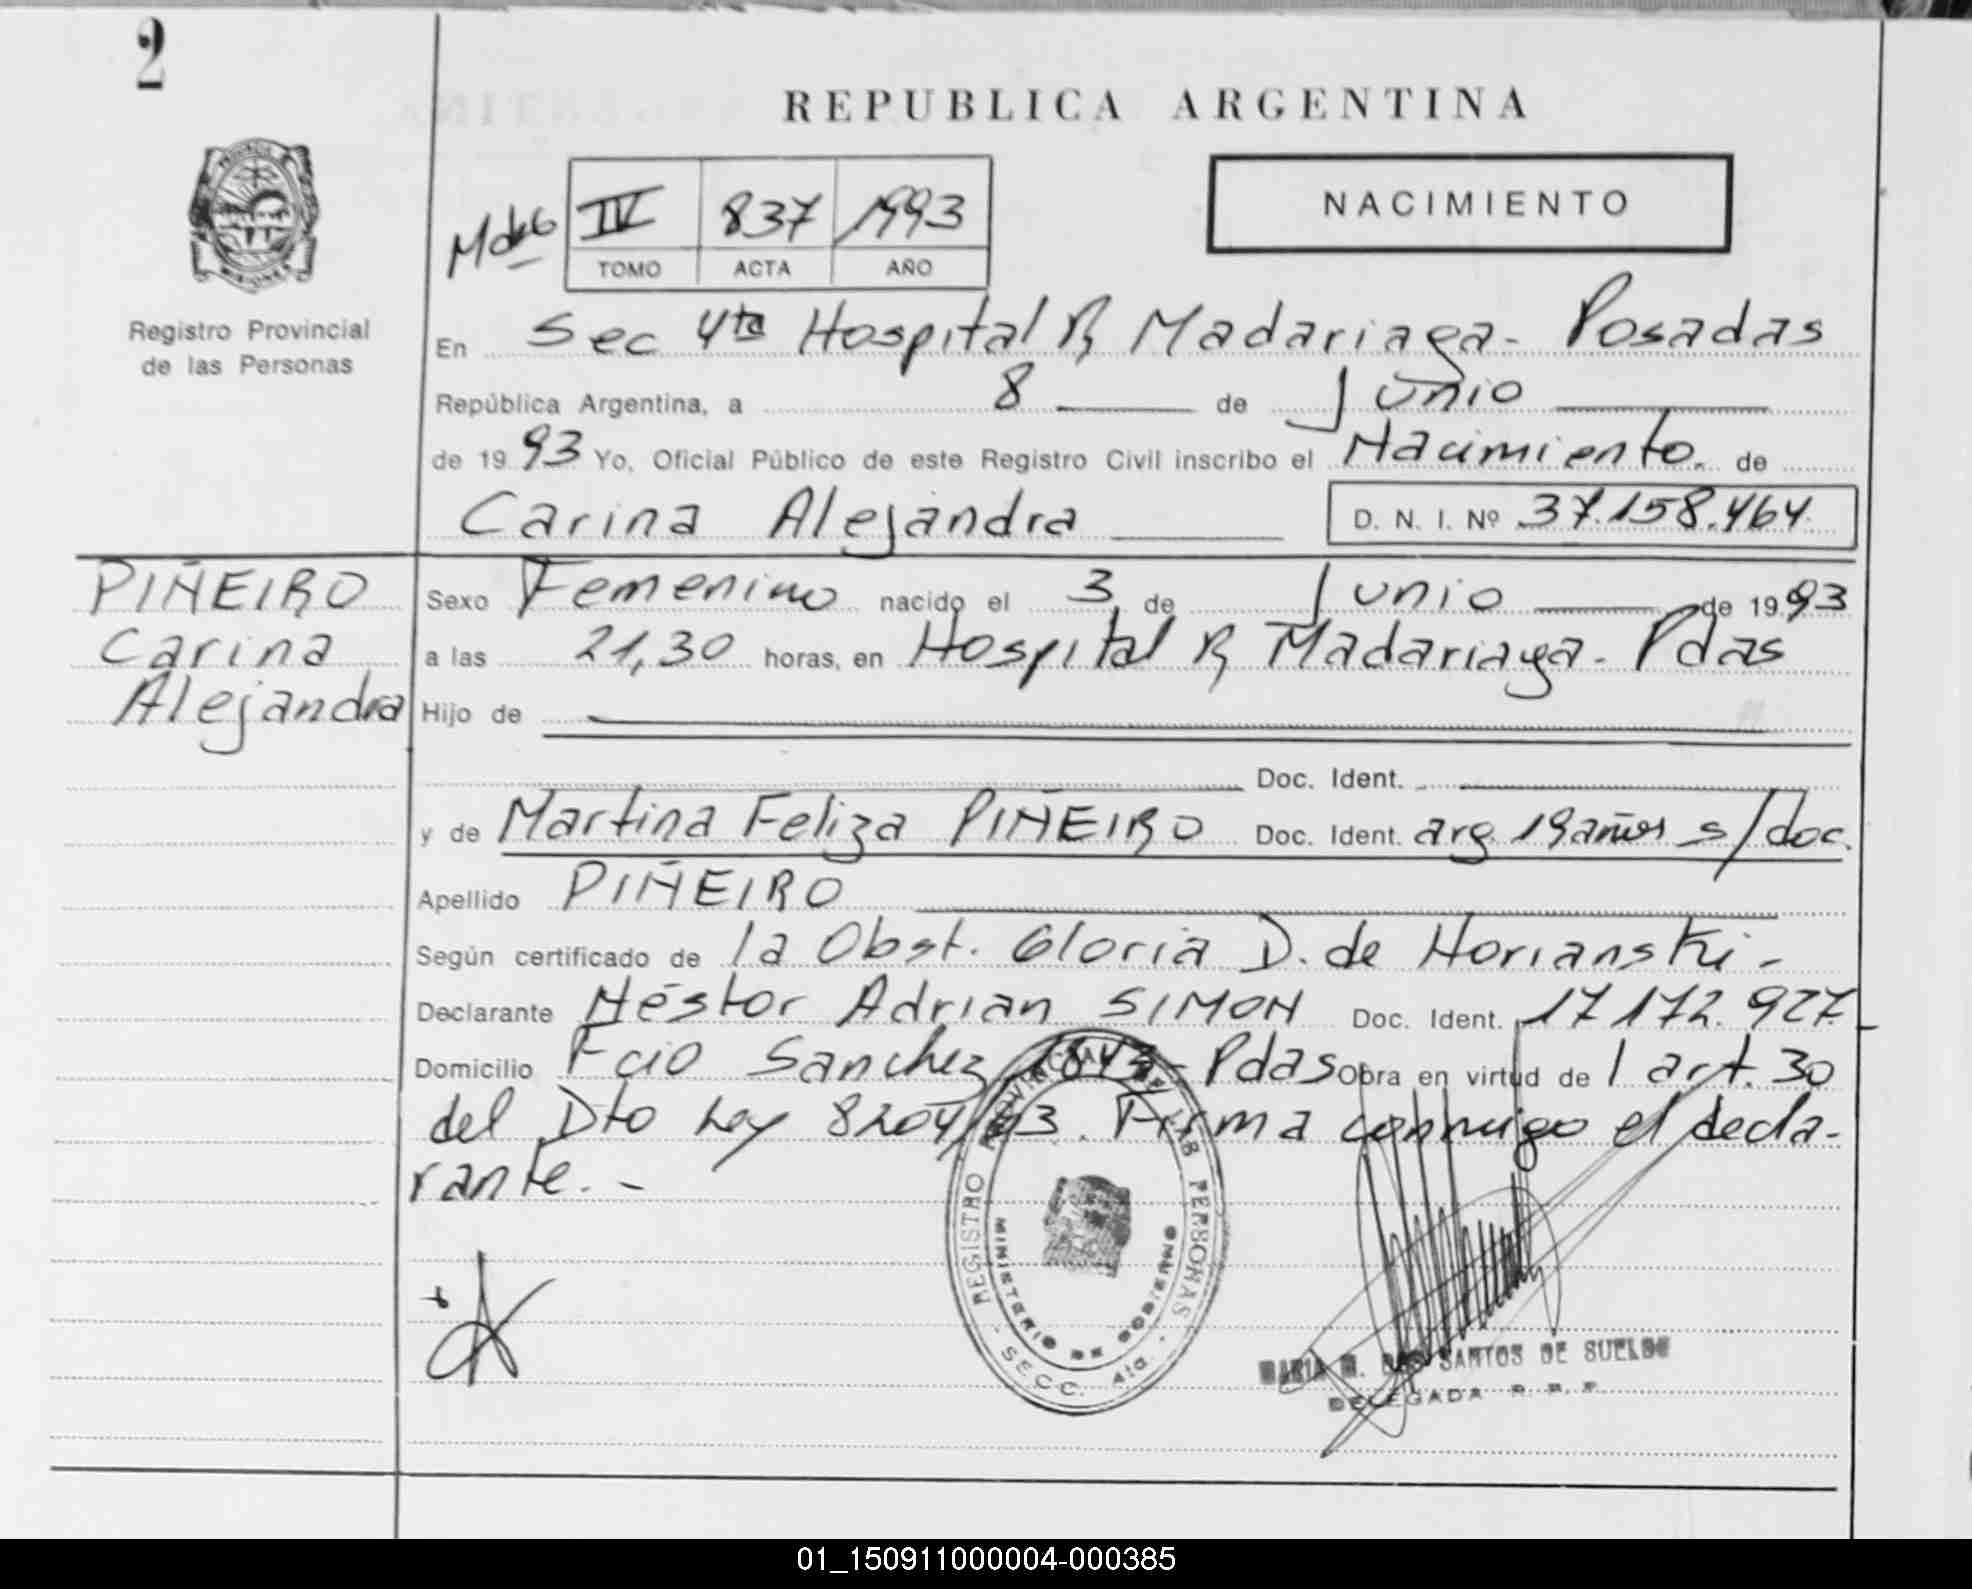 2
REPUBLICA ARGENTINA
PROVINCIA DE MISIONES
Registro Provincial
de las Personas
IV 837 1993
TOMO ACTA AÑO
NACIMIENTO
En Sec 4ta Hospital R Madariaga - Posadas
República Argentina, a 8 de Junio
de 1993 Yo, Oficial Público de este Registro Civil inscribo el Nacimiento. de
Carina Alejandra
D. N. I. Nº 37.158.464
PIÑEIRO
Carina
Alejandra
Sexo Femenino nacido el 3 de Junio de 1993
a las 21,30 horas, en Hospital R Madariaga - Pdas
Hijo de
Doc. Ident.
y de Martina Feliza PIÑEIRO Doc. Ident. arg. 19 años s/doc.
Apellido PIÑEIRO
Según certificado de la Obst. Gloria D. de Horianski -
Declarante Néstor Adrian SIMON Doc. Ident. 17 172.927 -
Domicilio Fcio Sanchez 1843 - Pdas Obra en virtud de l art. 30
del Dto Ley 8204/63. Firma conmigo el decla-
rante. -
REGISTRO PROVINCIAL DE LAS PERSONAS
MINISTERIO DE GOBIERNO
- SECC. 4ta. -
MARIA DOS SANTOS DE SUELDO
DELEGADA R. P. P.
01_150911000004-000385